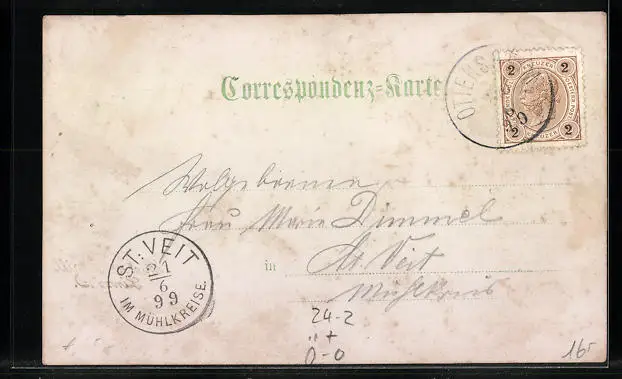 Correspondenz-Karte
2 KREUZER 2
2 KREUZER 2
OTTENS
99
Wolgeborene
Frau Marie Dimmel
in St. Veit
Mühlkreis
ST. VEIT
21
6
99
IM MÜHLKREISE.
24-2
" +
0-0
16,-